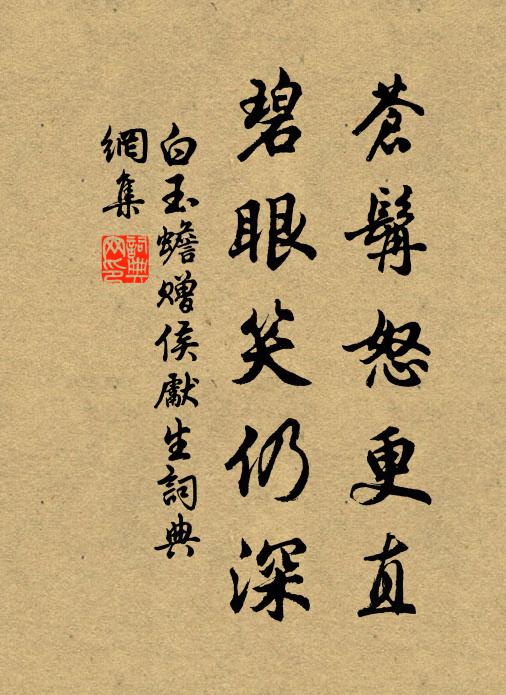 蒼髯怒更直
碧眼笑仍深
白玉蟾贈侯獻生詞典
網集
詞典
网印